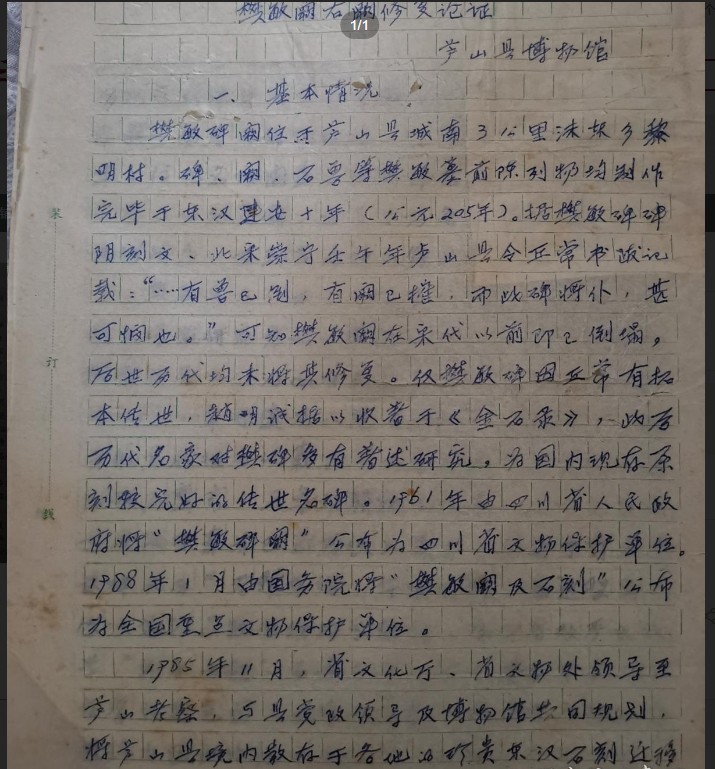 樊敏阙右阙修复论证
1/1
芦山县博物馆
一、基本情况
樊敏碑阙位于芦山县城南3公里沫东乡黎
明村。碑、阙、石兽等樊敏墓前陈列物均制作
完毕于东汉建安十年(公元205年)。据樊敏碑碑
阴刻文、北宋崇宁壬午年芦山县令丘常书跋记
载:“……有兽已刓,有阙已摧,而此碑将仆,甚
可悯也。”可知樊敏阙在宋代以前即已倒塌,
后世历代均未将其修复。仅樊敏碑因丘常有拓
本传世,赵明诚据以收著于《金石录》,此后
历代名家对樊碑多有著述研究,为国内现存原
刻较完好的传世名碑。1961年由四川省人民政
府将“樊敏碑阙”公布为四川省文物保护单位。
1988年1月由国务院将“樊敏阙及石刻”公布
为全国重点文物保护单位。
1985年11月,省文化厅、省文物处领导至
芦山考察,与县党政领导及博物馆共同规划,
将芦山县境内散存于各地的珍贵东汉石刻迁移
装
订
线